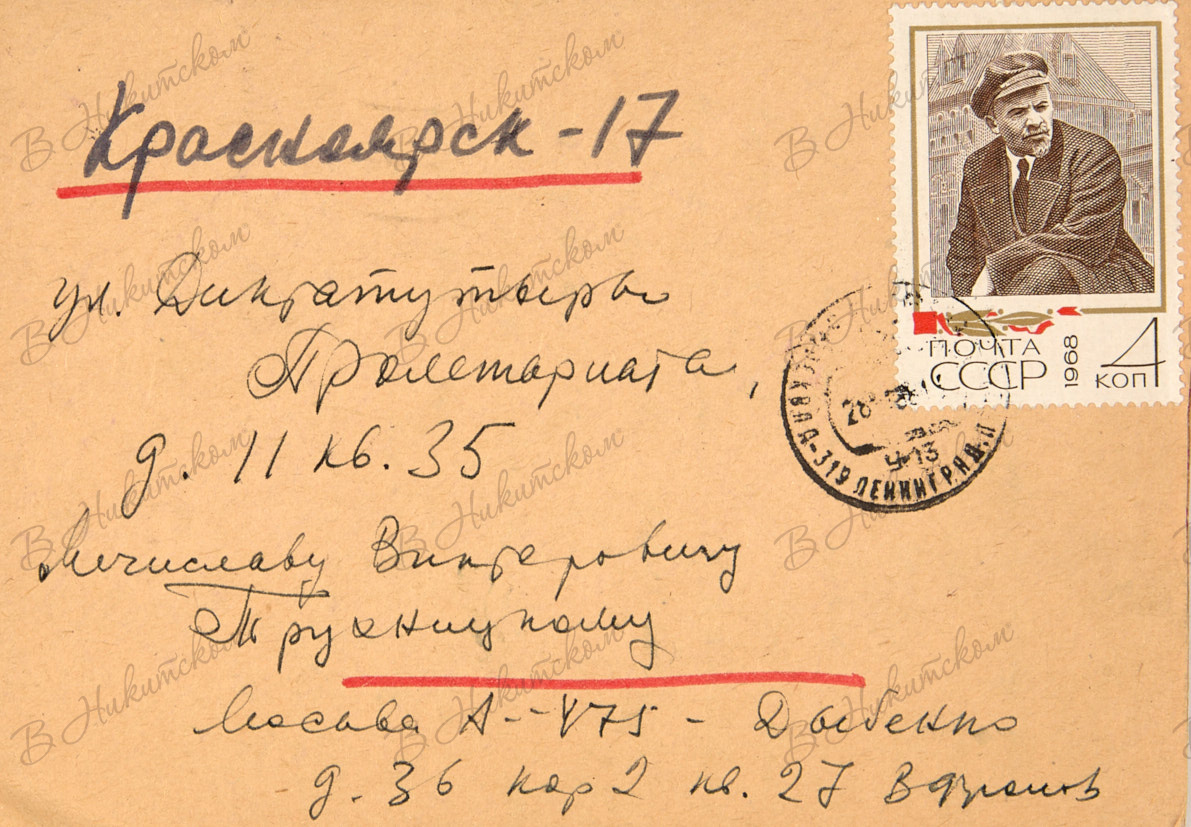 Красноярск-17
ул. Диктатутыры
Пролетариата,
д. 11 кв. 35
Мечиславу Викторовичу
Москва А-475 - Дыбенко
д. 36 кор 2 кв. 27
ПОЧТА
СССР
1968
4
КОП
МОСКВА-319 ЛЕНИНГРАД.П
Ч-13
В Никитском